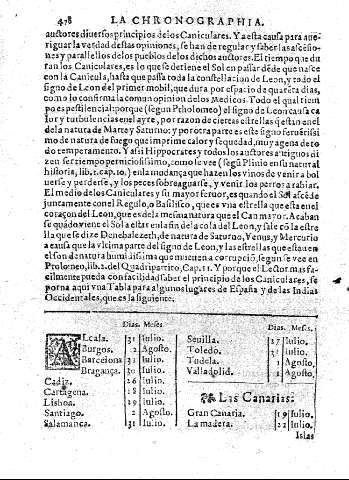 478 LA CHRONOGRAPHIA.
auctores diuersos principios de los Caniculares. Y a esta causa para aue
riguar la verdad destas opiniones, se han de regular y saber las ascensio
nes y parallelos de los pueblos de dichos auctores. El tiempo que du
ran los Caniculares, es lo que se detiene el Sol en passar dẽde que nasce
con la Canicula, hasta que passa toda la constellacion de Leon, y todo el
signo de Leon del primer mobil, que dura por espacio de quarẽta dias,
como lo confirma la comun opinion de los Medicos. Todo el qual tiem
po es pestilencial: porque (segun Ptholomeo) el signo de Leon causa ca
lor y turbulencias en el ayre, por razon de ciertas estrellas q̃ estan en el
de la natura de Marte y Saturno; y por otra parte es este signo ferocissi
mo de natura de fuego que imprime calor y sequedad, muy agena de to
do temperamento. Y assi Hippocrates y todos los auctores antiguos di
zen ser tiempo perniciosissimo, como se vee (segũ Plinio en su natural
historia, lib. 2. cap. 10.) en la mudança que hazen los vinos de venir a bol
uerse y perderse, y los peces sobreaguarse, y venir los perros a rabiar.
El medio de los Caniculares y su mayor feruor, es quando el Sol ascẽde
juntamente con el Regulo, o Basilisco, que es vna estrella que esta en el
coraçon del Leon, que es de la mesma natura que el Can mayor. Acaban
se quãdo viene el Sol a estar en la fin de la cola del Leon, y sale cõ la estre
lla que se dize Denebalezeth, de natura de Saturno, Venus, y Mercurio
a causa que la vltima parte del signo de Leon, y las estrellas que estan en
el son de natura humidissima que mueuen a corrupciõ, segun se vee en
Ptolomeo, lib. 2. del Quadripartito, Cap. 11. Y porque el Lector mas fa-
cilmente pueda con facilidad saber el principio de los Caniculares, se
porna aqui vna Tabla para algunos lugares de España y de las Indias
Occidentales, que es la siguiente.
Dias. Meses
ALcala. 31 Iulio.
Burgos. 2 Agosto.
Barcelona 31 Iulio.
Bragança. 30 Iulio.
Cadiz. 26 Iulio.
Cartagena. 28 Iulio.
Lisboa. 29 Iulio.
Santiago. 2 Agosto.
Salamanca. 31 Iulio.
Dias. Meses.
Seuilla. 27 Iulio.
Toledo. 31 Iulio.
Tudela. 1 Agosto.
Valladolid. 1 Agosto.
Las Canarias.
Gran Canaria. 19 Iulio.
La madera. 22 Iulio.
Islas